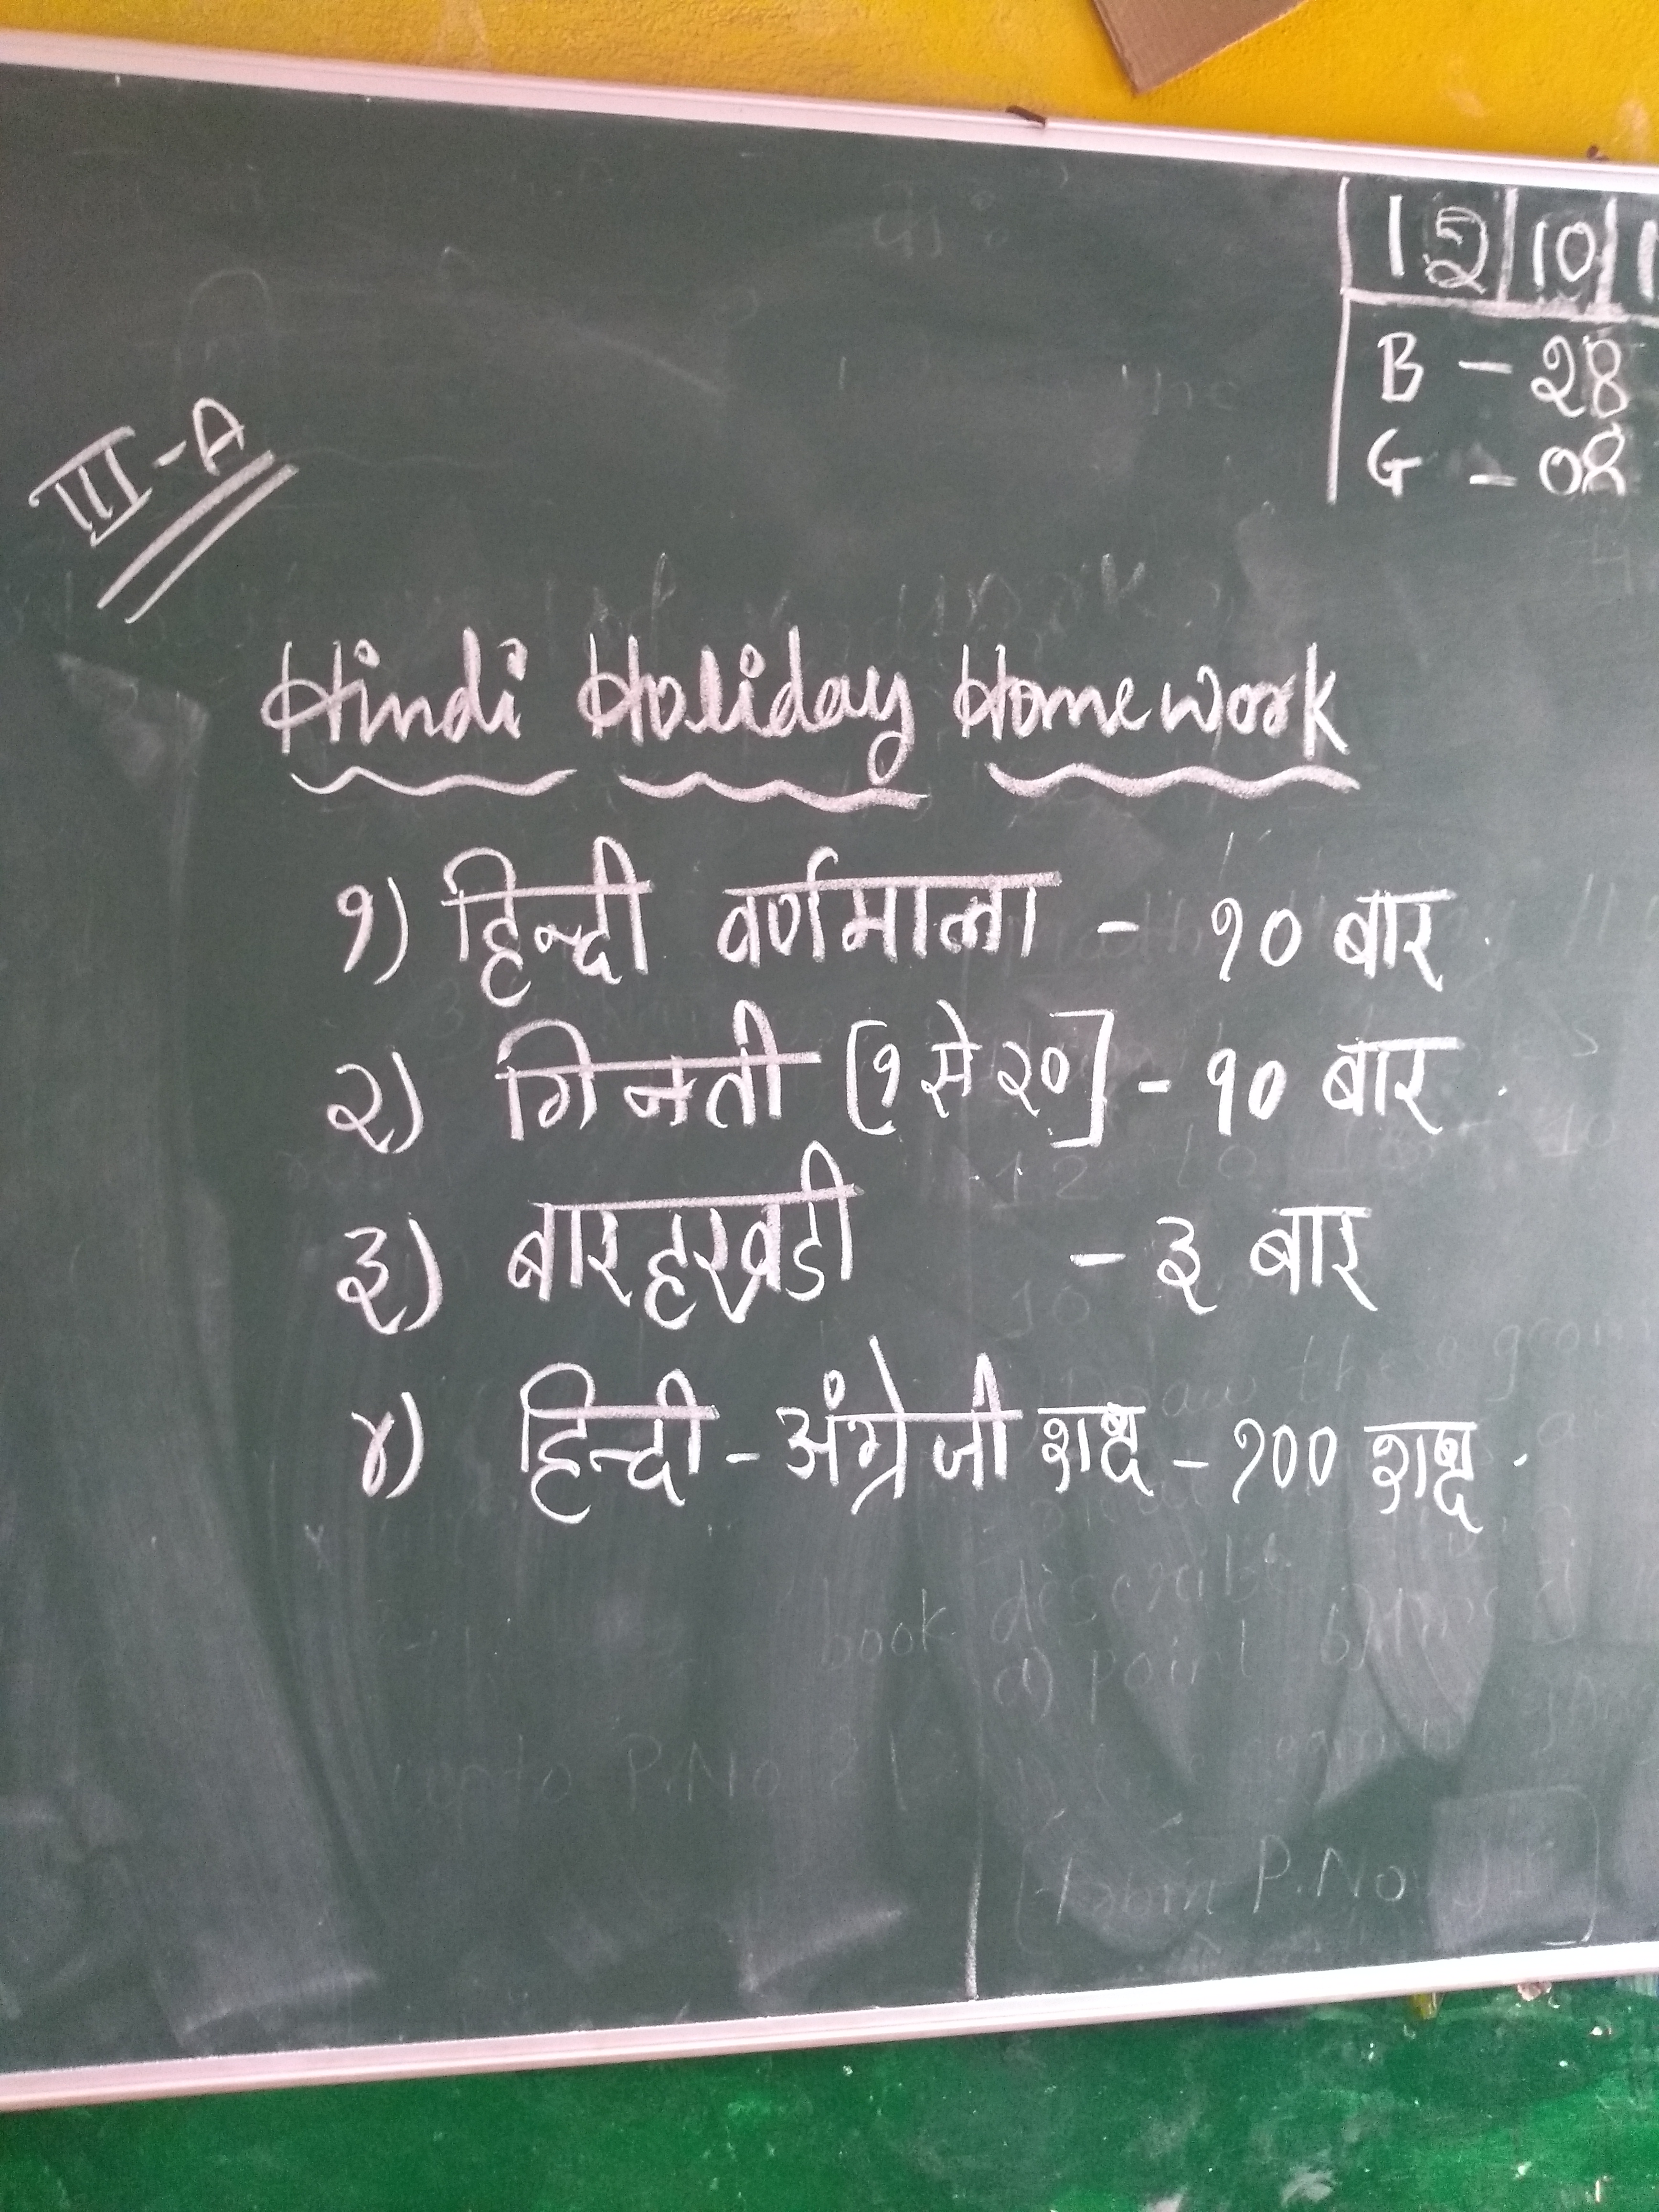 15 | 10 | 1
B - 28
G - 08
III - A
Hindi Holiday Homework
१) हिन्दी वर्णमाला - १० बार
२) गिनती [१ से २०] - १० बार
३) बारहखडी - ३ बार
४) हिन्दी - अंग्रेजी शब्द - १०० शब्द
book
a) point
P.No
P.No